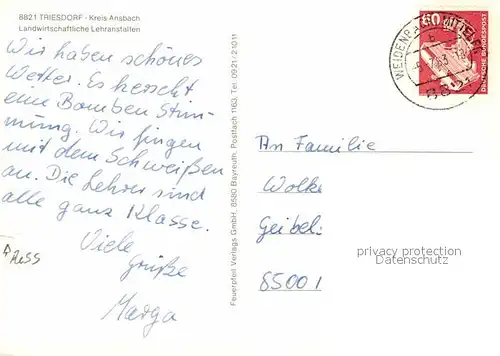 8821 TRIESDORF - Kreis Ansbach
Landwirtschaftliche Lehranstalten
Wir haben schönes
Wetter. Es herrscht
eine Bomben Stim-
mung. Wir fingen
mit dem Schweißen
an. Die Lehrer sind
alle ganz Klasse.
Viele
Grüße
Marga
Feuerpfeil Verlags GmbH, 8580 Bayreuth, Postfach 1163, Tel. 09 21 / 2 10 11
60
DEUTSCHE BUNDESPOST
An Familie
Wolke
Geibel
8500 1
privacy protection
Datenschutz